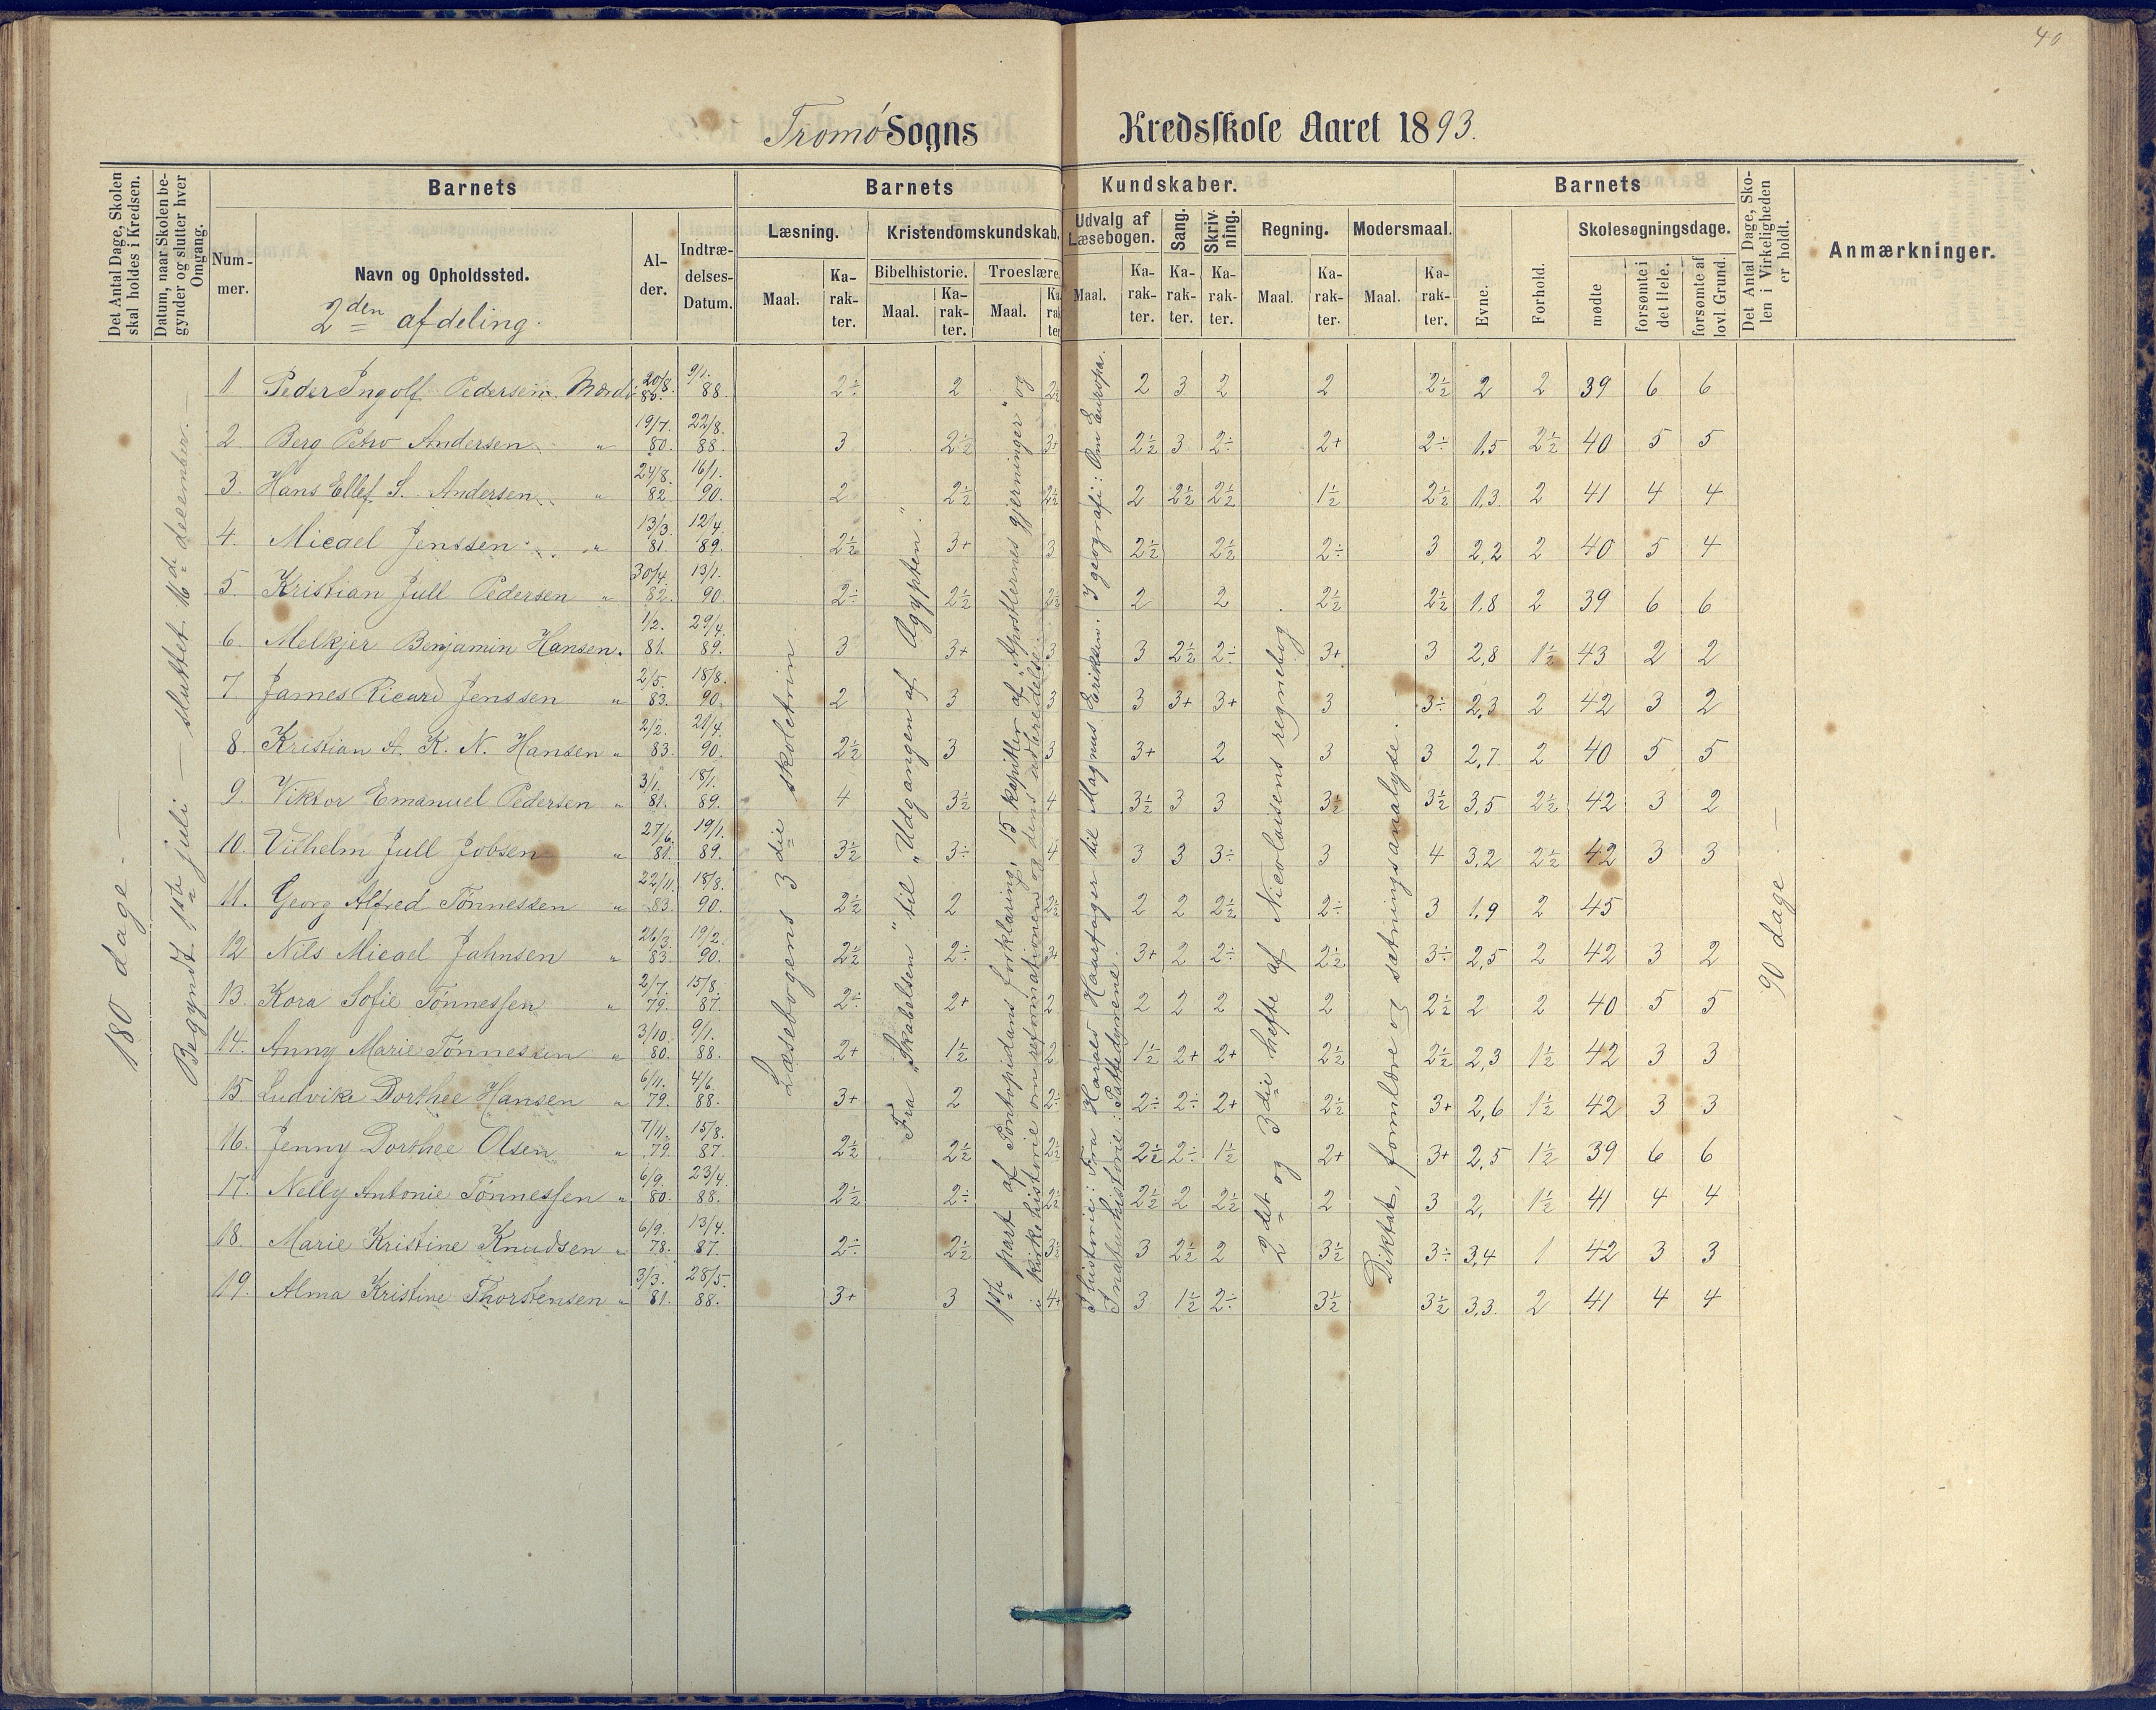 40
Tromö Sogns Kredsskole Aaret 1893.
Det Antal Dage, Skolen skal holdes i Kredsen.
Datum, naar Skolen begynder og slutter hver Omgang.
Barnets
Barnets Kundskaber.
Barnets
Det Antal Dage, Skolen i Virkeligheden er holdt.
Anmærkninger.
Nummer.
Navn og Opholdssted.
2den afdeling.
Alder.
Indtrædelses-Datum.
Læsning.
Kristendomskundskab.
Udvalg af Læsebogen.
Sang.
Skrivning.
Regning.
Modersmaal.
Evne.
Forhold.
Skolesøgningsdage.
Bibelhistorie.
Troeslære.
Maal.
Karakter.
Maal.
Karakter.
Maal.
Karakter
Maal.
Karakter.
Karakter.
Karakter.
Maal.
Karakter.
Maal.
Karakter.
mødte
forsømte i det Hele.
forsømte af lovl. Grund.
180 dage. —
Begyndt 1ste juli — sluttet 16de december. —
Læsebogens 3die skoletrin
Fra "Skabelsen" til "Udgangen af Ægypten."
1ste part af Pontopidans forklaring, 15 kapitler af "Apostlernes gjerninger" og
i kirkehistorie om reformationen og dens udbredelse.
I historie: Fra Harald Haarfager til Magnus Eriksen. I geografi: Om Europa.
I naturhistorie: Pattedyrene.
2det og 3die hefte af Nicolaisens regnebog
Diktat, formlære og sætningsanalyse. —
90 dage —
1 Peder Ingolf Pedersen. Mærdø 20/8. 80. 9/1. 88. 2÷ 2 2½ 2 3 2 2 2½ 2 2 39 6 6
2 Berg Petro Andersen " 19/7. 80. 22/8. 88. 3 2½ 3+ 2½ 3 2÷ 2+ 2÷ 1,5 2½ 40 5 5
3. Hans Ellef S. Andersen " 24/8. 82. 16/1. 90. 2 2½ 2½ 2 2½ 2½ 1½ 2½ 1,3 2 41 4 4
4. Micael Jenssen " 13/3. 81. 12/4. 89. 2½ 3+ 3 2½ 2½ 2÷ 3 2,2 2 40 5 4
5. Kristian Jull Pedersen " 30/4. 82. 13/1. 90 2÷ 2½ 2½ 2 2 2½ 2½ 1,8 2 39 6 6
6. Melkjer Benjamin Hansen. 1/2. 81. 29/4. 89. 3 3+ 3 3 2½ 2÷ 3+ 3 2,8 1½ 43 2 2
7. James Ricard Jenssen " 2/5. 83. 18/8. 90. 2 3 3 3 3+ 3+ 3 3÷ 2,3 2 42 3 2
8. Kristian A. K. N. Hansen " 2/2. 83. 21/4. 90. 2½ 3 3 3+ 2 3 3 2,7. 2 40 5 5
9. Viktor Emanuel Pedersen " 3/1. 81. 18/1. 89. 4 3½ 4 3½ 3 3 3½ 3½ 3,5 2½ 42 3 2
10. Vilhelm Jull Jobsen " 27/6. 81. 19/1. 89. 3½ 3÷ 4 3 3 3÷ 3 4 3,2 2½ 42 3 3
11. Georg Alfred Tönnessen " 22/11. 83. 18/8. 90. 2½ 2 2½ 2 2 2½ 2÷ 3 1,9 2 45
12 Nils Micael Jahnsen " 26/3. 83. 19/2. 90. 2½ 2÷ 3+ 3+ 2 2÷ 2½ 3÷ 2,5 2 42 3 2
13. Kora Sofie Tönnessen " 2/7. 79. 15/8. 87. 2÷ 2+ 2 2 2 2 2 2½ 2 2 40 5 5
14. Anny Marie Tönnessen " 3/10. 80. 9/1. 88. 2+ 1½ 2 1½ 2+ 2+ 2½ 2½ 2,3 1½ 42 3 3
15. Ludvika Dorthee Hansen " 6/11. 79. 4/6. 88. 3+ 2 2÷ 2÷ 2÷ 2+ 2½ 3+ 2,6 1½ 42 3 3
16. Jenny Dorthee Olsen " 7/11. 79. 15/8. 87. 2½ 2½ 2½ 2½ 2÷ 1½ 2+ 3+ 2,5 1½ 39 6 6
17. Nelly Antonie Tönnessen " 6/9. 80. 23/4. 88. 2½ 2÷ 2½ 2½ 2 2½ 2 3 2, 1½ 41 4 4
18. Marie Kristine Knudsen " 6/9. 78. 13/4. 87. 2÷ 2½ 3½ 3 2½ 2 3½ 3÷ 3,4 1 42 3 3
19. Alma Kristine Thorstensen " 3/3. 81. 28/5. 88. 3+ 3 4+ 3 1½ 2÷ 3½ 3½ 3,3. 2 41 4 4